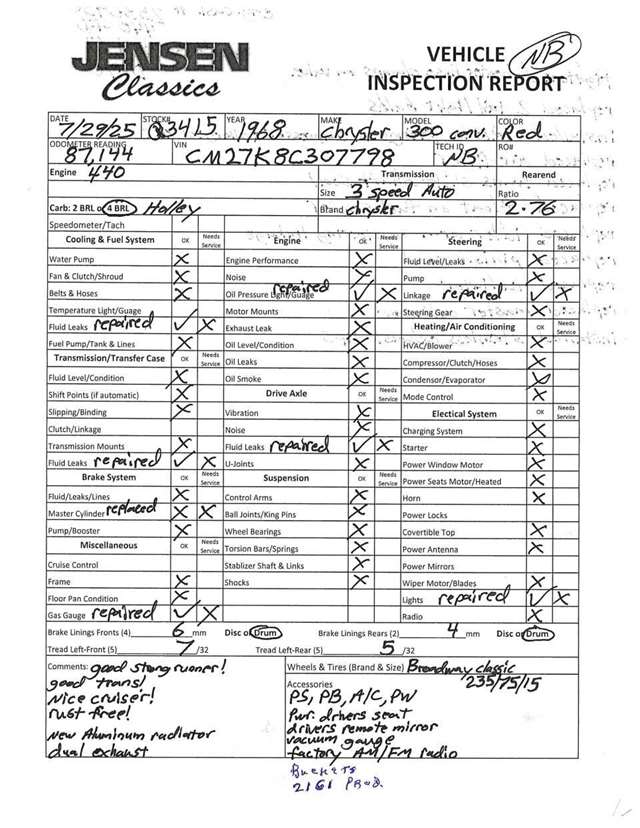 JENSEN
Classics
VEHICLE NB
INSPECTION REPORT
DATE 7/29/25 STOCK# 3415 YEAR 1968 MAKE Chrysler MODEL 300 conv. COLOR Red
ODOMETER READING 87,144 VIN CM27K8C307798 TECH ID NB RO#
Engine 440 Transmission Rearend
Size 3 speed Auto Ratio
Carb: 2 BRL o 4 BRL Holley Brand chrysler 2.76
Speedometer/Tach
Cooling & Fuel System OK Needs Service Engine OK Needs Service Steering OK Needs Service
Water Pump X Engine Performance X Fluid Level/Leaks X
Fan & Clutch/Shroud X Noise X Pump X
Belts & Hoses X Oil Pressure Light/Guage repaired ✓ X Linkage repaired ✓ X
Temperature Light/Guage Motor Mounts X Steering Gear X
Fluid Leaks repaired ✓ X Exhaust Leak X Heating/Air Conditioning OK Needs Service
Fuel Pump/Tank & Lines X Oil Level/Condition X HVAC/Blower X
Transmission/Transfer Case OK Needs Service Oil Leaks X Compressor/Clutch/Hoses X
Fluid Level/Condition X Oil Smoke X Condensor/Evaporator X
Shift Points (if automatic) X Drive Axle OK Needs Service Mode Control X
Slipping/Binding X Vibration X Electrical System OK Needs Service
Clutch/Linkage Noise X Charging System X
Transmission Mounts X Fluid Leaks repaired ✓ X Starter X
Fluid Leaks repaired ✓ X U-Joints X Power Window Motor X
Brake System OK Needs Service Suspension OK Needs Service Power Seats Motor/Heated X
Fluid/Leaks/Lines X Control Arms X Horn X
Master Cylinder replaced X X Ball Joints/King Pins X Power Locks
Pump/Booster X Wheel Bearings X Covertible Top X
Miscellaneous OK Needs Service Torsion Bars/Springs X Power Antenna X
Cruise Control Stablizer Shaft & Links X Power Mirrors
Frame X Shocks X Wiper Motor/Blades X
Floor Pan Condition X Lights repaired ✓ X
Gas Gauge repaired ✓ X Radio X
Brake Linings Fronts (4) 6 mm Disc or Drum Brake Linings Rears (2) 4 mm Disc or Drum
Tread Left-Front (5) 7 /32 Tread Left-Rear (5) 5 /32
Comments: good strong runner! Wheels & Tires (Brand & Size) Broadway classic
good trans! Accessories 235/75/15
Nice cruiser! PS, PB, A/C, PW
rust free! Pwr. drivers seat
drivers remote mirror
New Aluminum radiator vacuum gauge
dual exhaust factory AM/FM radio
Buckets
2161 PROD.